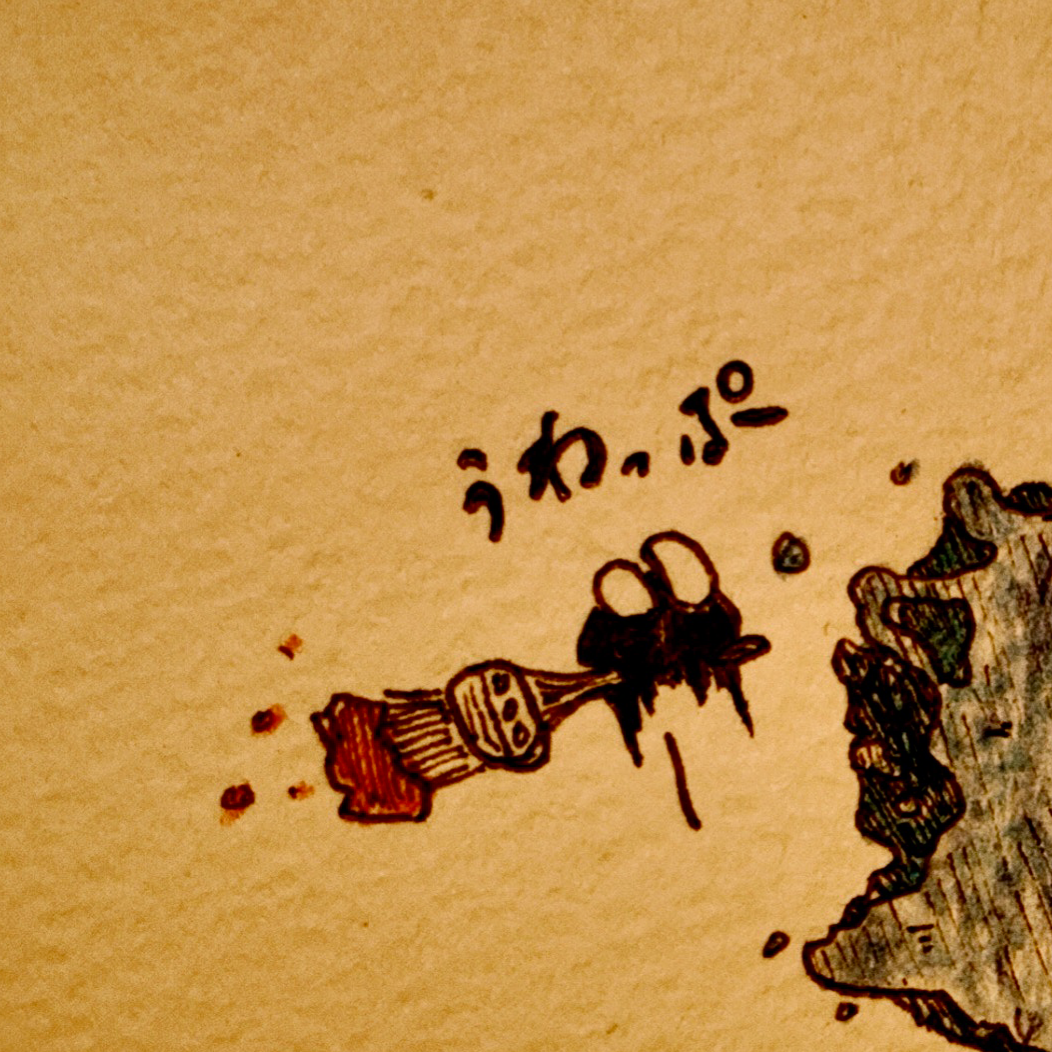 うわっぷー